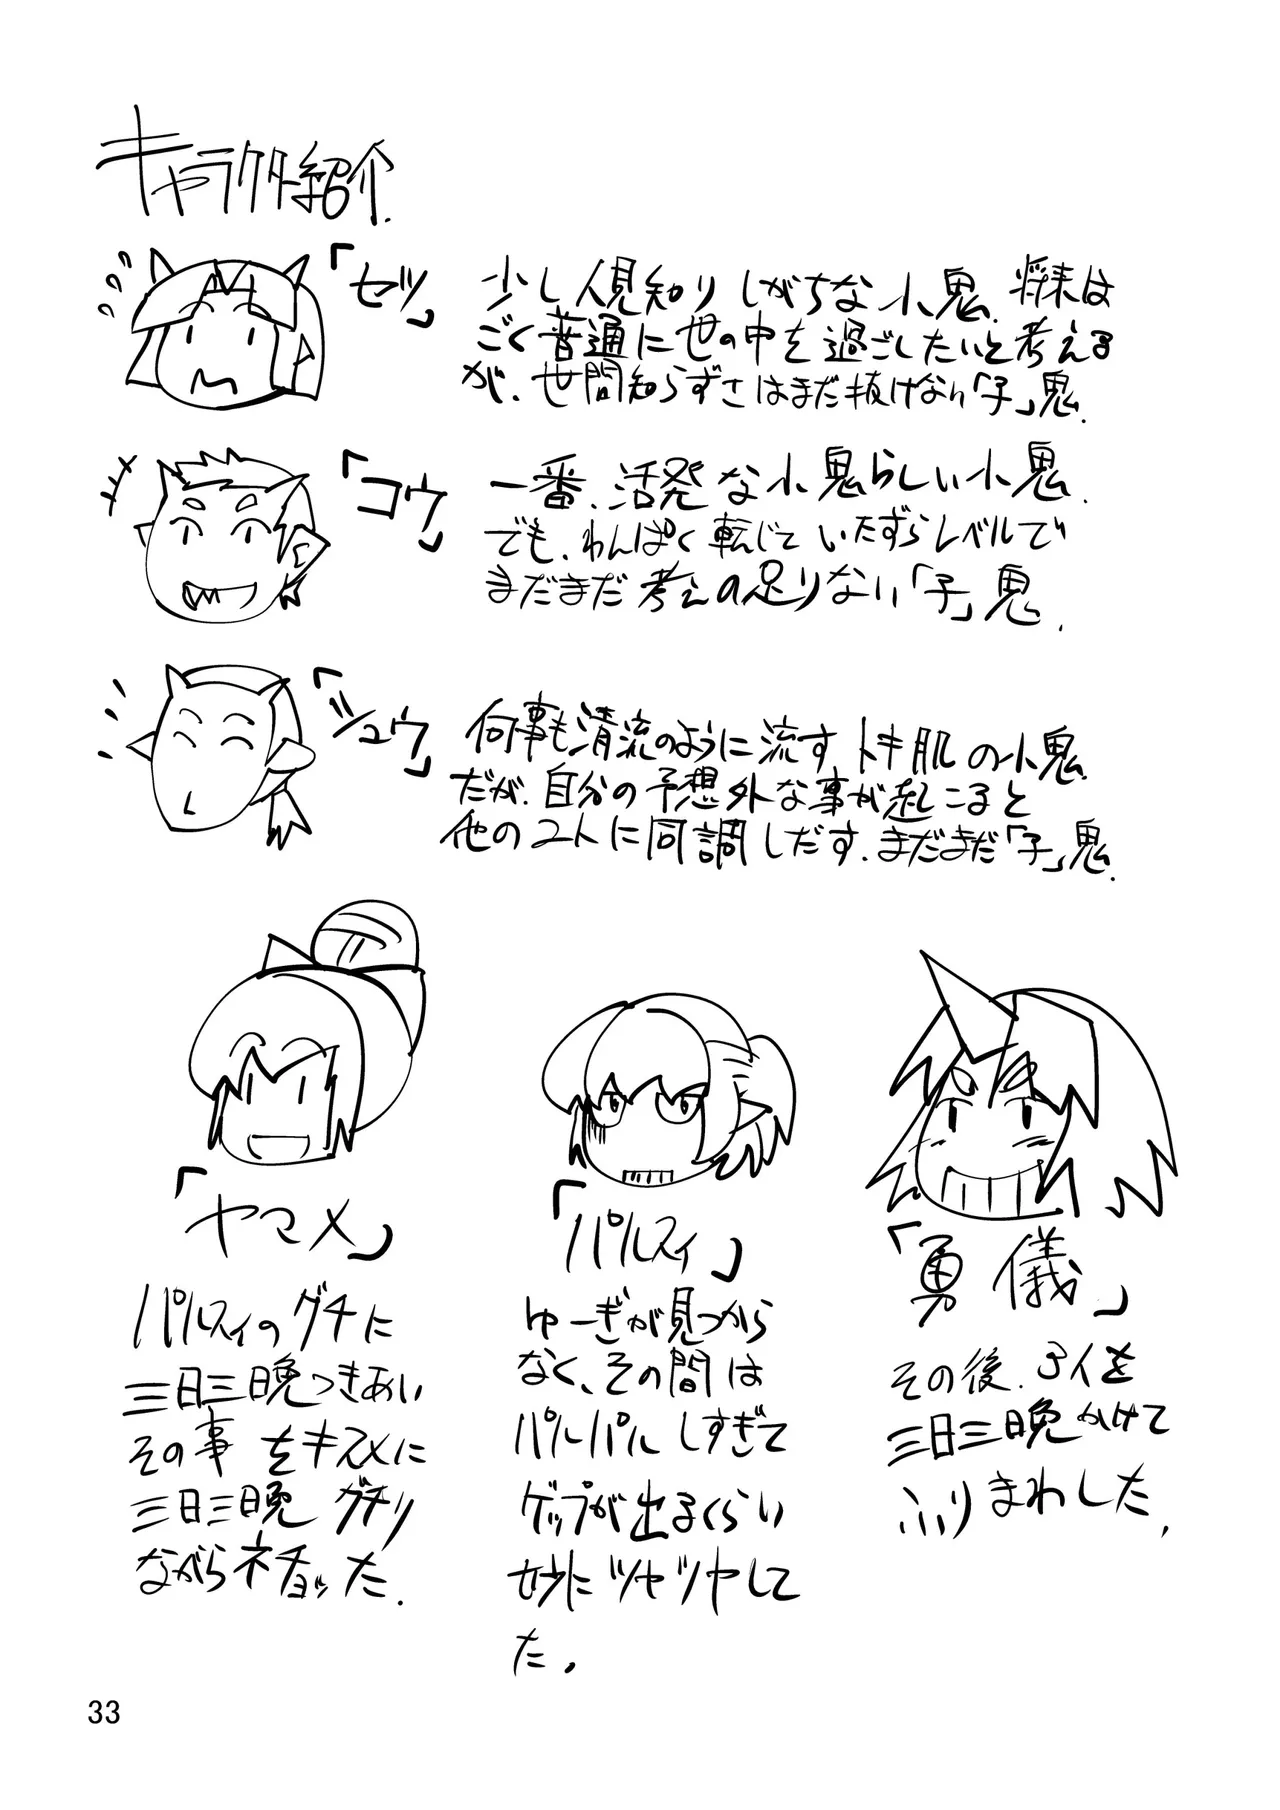 キャラクター紹介.
「セツ」
少し人見知りしがちな小鬼. 将来は
ごく普通に世の中を過ごしたいと考える
が、世間知らずさはまだ抜けない「子」鬼.
「コウ」
一番、活発な小鬼らしい小鬼.
でも、わんぱく転じていたずらレベルで
まだまだ考えの足りない「子」鬼.
「シュウ」
何事も清流のように流すトキ肌の小鬼.
だが、自分の予想外な事が起こると
他の2人に同調しだす、まだまだ「子」鬼.
「ヤマメ」
パルスィのグチに
三日三晩つきあい
その事をキスメに
三日三晩グチり
ながらネチョッた.
「パルスィ」
ゆーぎが見つから
なく、その間は
パルパルしすぎて
ゲップが出るくらい
妙にツヤツヤして
た。
「勇儀」
その後、3人を
三日三晩かけて
ふりまわした.
33